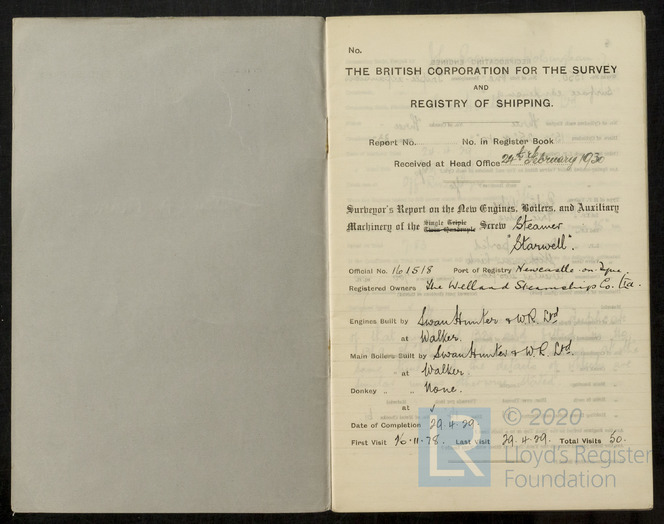 No.
THE BRITISH CORPORATION FOR THE SURVEY
AND
REGISTRY OF SHIPPING.
Report No. No. in Register Book
Received at Head Office 24th February 1930
Surveyor's Report on the New Engines, Boilers, and Auxiliary
Single Triple
Machinery of the Twin Quadruple Screw Steamer
"Starwell".
Official No. 161518 Port of Registry Newcastle on Tyne.
Registered Owners The Welland Steamships Co. Ltd.
Engines Built by Swan Hunter & W.R. Ltd
at Walker.
Main Boilers Built by Swan Hunter & W.R. Ltd.
at Walker.
Donkey " " None.
at ✓
Date of Completion 29.4.29.
First Visit 16.11.28. Last Visit 29.4.29. Total Visits 50.
© 2020
LR
Lloyd's Register
Foundation